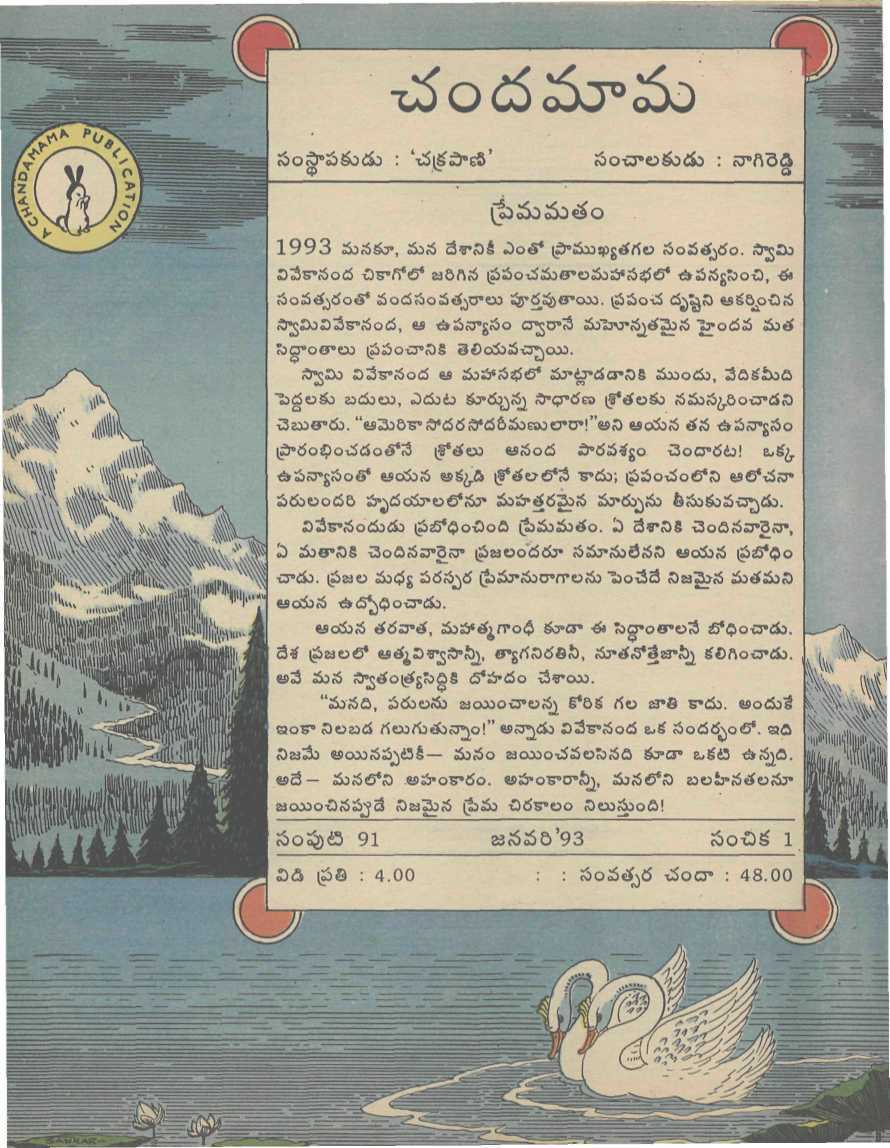 చందమామ
A CHANDAMAMA PUBLICATION
సంస్థాపకుడు : ‘చక్రపాణి’ సంచాలకుడు : నాగిరెడ్డి
ప్రేమమతం
1993 మనకూ, మన దేశానికీ ఎంతో ప్రాముఖ్యతగల సంవత్సరం. స్వామి
వివేకానంద చికాగోలో జరిగిన ప్రపంచమతాలమహాసభలో ఉపన్యసించి, ఈ
సంవత్సరంతో వందసంవత్సరాలు పూర్తవుతాయి. ప్రపంచ దృష్టిని ఆకర్షించిన
స్వామివివేకానంద, ఆ ఉపన్యాసం ద్వారానే మహోన్నతమైన హైందవ మత
సిద్ధాంతాలు ప్రపంచానికి తెలియవచ్చాయి.
స్వామి వివేకానంద ఆ మహాసభలో మాట్లాడడానికి ముందు, వేదికమీది
పెద్దలకు బదులు, ఎదుట కూర్చున్న సాధారణ శ్రోతలకు నమస్కరించాడని
చెబుతారు. “ఆమెరికా సోదరసోదరీమణులారా!”అని ఆయన తన ఉపన్యాసం
ప్రారంభించడంతోనే శ్రోతలు ఆనంద పారవశ్యం చెందారట! ఒక్క
ఉపన్యాసంతో ఆయన అక్కడి శ్రోతలలోనే కాదు; ప్రపంచంలోని ఆలోచనా
పరులందరి హృదయాలలోనూ మహత్తరమైన మార్పును తీసుకువచ్చాడు.
వివేకానందుడు ప్రబోధించింది ప్రేమమతం. ఏ దేశానికి చెందినవారైనా,
ఏ మతానికి చెందినవారైనా ప్రజలందరూ సమానులేనని ఆయన ప్రబోధిం
చాడు. ప్రజల మధ్య పరస్పర ప్రేమానురాగాలను పెంచేదే నిజమైన మతమని
ఆయన ఉద్బోధించాడు.
ఆయన తరవాత, మహాత్మగాంధీ కూడా ఈ సిద్ధాంతాలనే బోధించాడు.
దేశ ప్రజలలో ఆత్మవిశ్వాసాన్నీ, త్యాగనిరతినీ, నూతనోత్తేజాన్నీ కలిగించాడు.
అవే మన స్వాతంత్ర్యసిద్ధికి దోహదం చేశాయి.
“మనది, పరులను జయించాలన్న కోరిక గల జాతి కాదు. అందుకే
ఇంకా నిలబడ గలుగుతున్నాం!” అన్నాడు వివేకానంద ఒక సందర్భంలో. ఇది
నిజమే అయినప్పటికీ— మనం జయించవలసినది కూడా ఒకటి ఉన్నది.
అదే— మనలోని అహంకారం. అహంకారాన్నీ, మనలోని బలహీనతలనూ
జయించినప్పుడే నిజమైన ప్రేమ చిరకాలం నిలుస్తుంది!
సంపుటి 91 జనవరి’93 సంచిక 1
విడి ప్రతి : 4.00 : : సంవత్సర చందా : 48.00
SANKAR